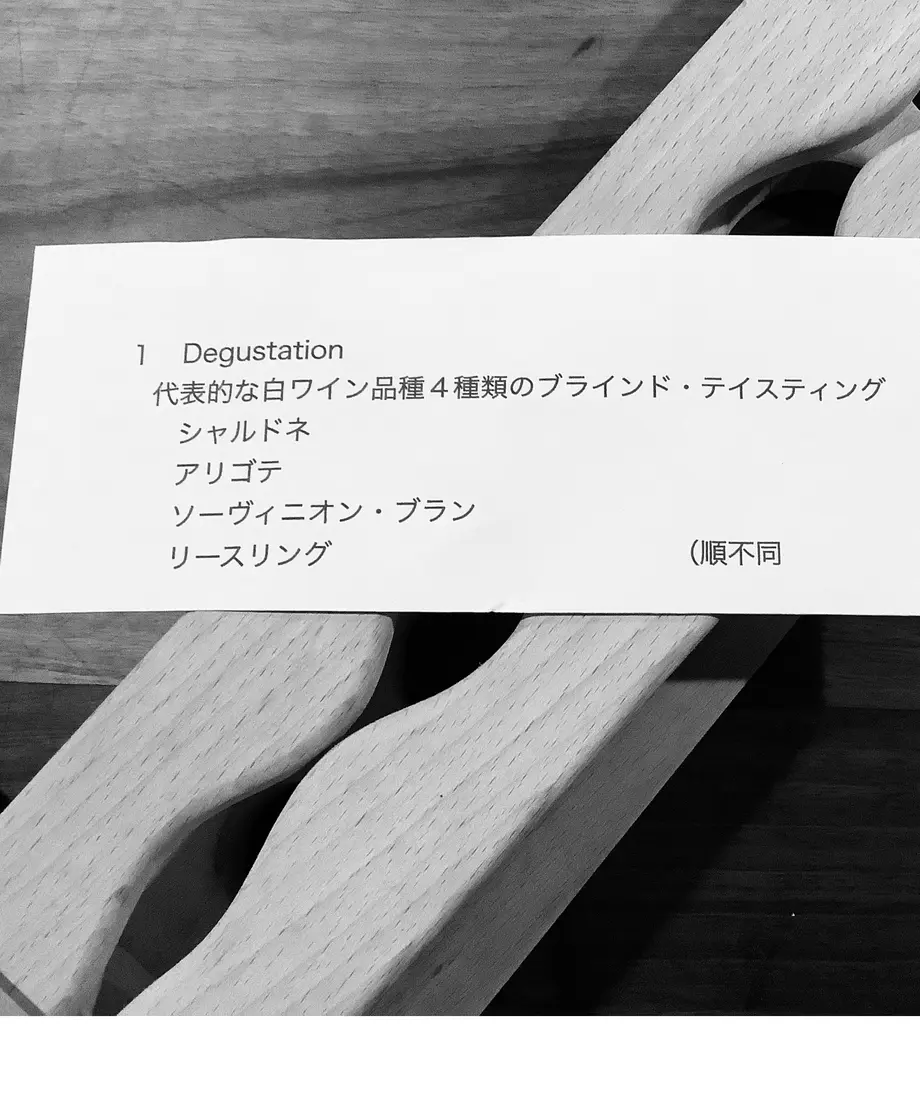 1 Degustation
代表的な白ワイン品種４種類のブラインド・テイスティング
シャルドネ
アリゴテ
ソーヴィニオン・ブラン
リースリング (順不同